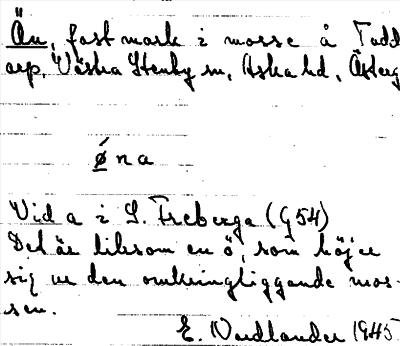 Ön, fast mark i mosse å Tadd
arp, Västra Stenby sn, Aska hd, Österg
ǿna
Vid a i S. Freberga (G54)
Det är liksom en ö, som höjer
sig ur den omkringliggande mos-
sen.
E. Nordlander 1945